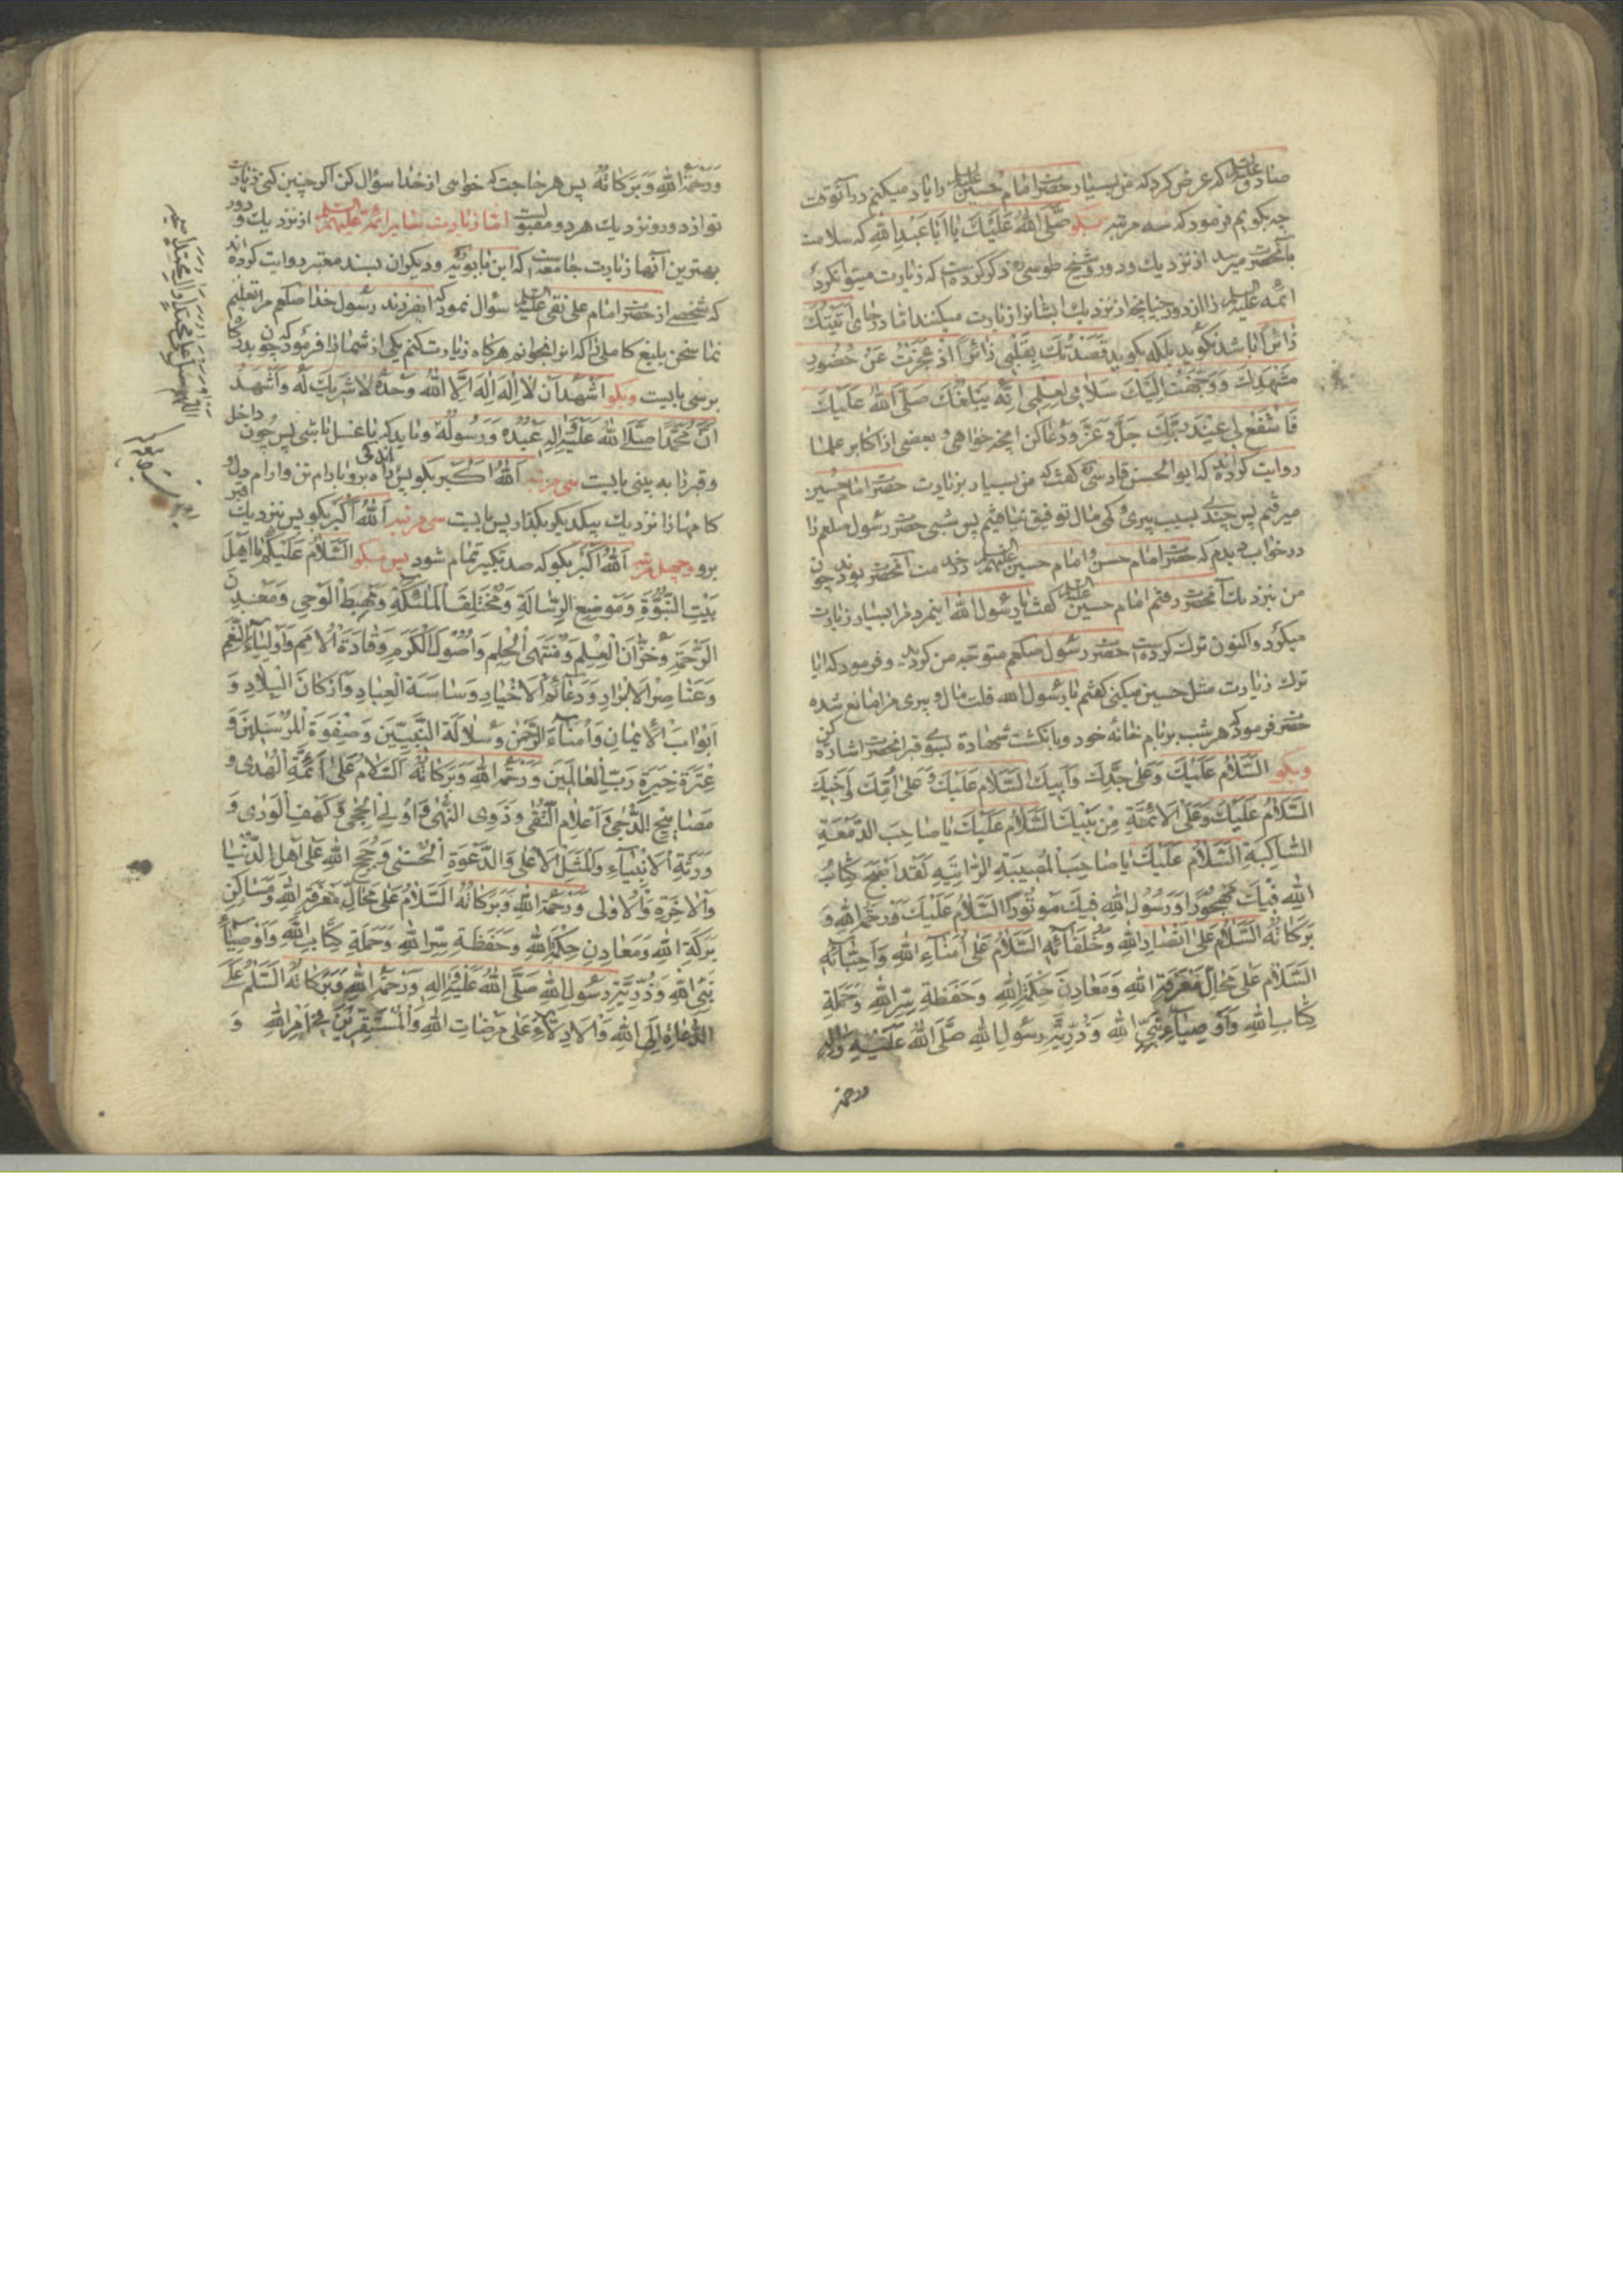 صادق علیه السلام که عرض کرد که من بسیار حضرت امام حسین علیه السلام را یاد میکنم در آنوقت
چه بگویم فرمود که سه مرتبه بگو صَلَّی اللهُ عَلَیْكَ یا اَبا عَبْدِ اللهِ که سلامت
بآنحضرت میرسد از نزدیك و دور و شیخ طوسی ره ذکر کرده است که زیارت میتوان کرد
ائمه علیهم السلام را از دور چنانچه از نزدیك ایشان را زیارت میکنند اما در جای اَتَیْتُكَ
زائراً باشد نگوید بلکه بگوید قَصَدْتُكَ بِقَلْبی زائِراً اِذْ عَجَزْتُ عَنْ حُضُورِ
مَشْهَدِكَ وَ وَجَّهْتُ اِلَیْكَ سَلامی لِعِلْمی اَنَّهُ یَبْلُغُكَ صَلَّی اللهُ عَلَیْكَ
فَاشْفَعْ لی عِنْدَ رَبِّكَ جَلَّ وَ عَزَّ و دعا کن آنچه خواهی و بعضی از اکابر علما
روایت کرده‌اند که ابو الحسن فارسی ره گفت که من بسیار بزیارت حضرت امام حسین
میرفتم پس چندی بسبب پیری و کمی مال توفیق نیافتم پس شبی حضرت رسول صلعم را
در خواب دیدم که حضرت امام حسن و امام حسین علیهم السلام در خدمت آنحضرت بودند چون
من بنزدیك آنحضرت رفتم امام حسین علیه السلام گفت یا رسول الله اینمرد مرا بسیار زیارت
میکرد و اکنون ترك کرده است حضرت رسول صلعم متوجه من گردید و فرمود که ایا
ترك زیارت مثل حسین میکنی گفتم یا رسول الله قلت مال و پیری مرا مانع شده
حضرت فرمود که هر شب بر بام خانه خود و بانگشت شهادة بسوی قبر آنحضرت اشاره کن
و بگو اَلسَّلامُ عَلَیْكَ وَ عَلی جَدِّكَ وَ اَبیكَ اَلسَّلامُ عَلَیْكَ وَ عَلی اُمِّكَ وَ اَخیكَ
اَلسَّلامُ عَلَیْكَ وَ عَلَی الْاَئِمَّةِ مِنْ بَنیكَ اَلسَّلامُ عَلَیْكَ یا صاحِبَ الدَّمْعَةِ
السّاکِبَةِ اَلسَّلامُ عَلَیْكَ یا صاحِبَ الْمُصیبَةِ الرّاتِبَةِ لَقَدْ اَصْبَحَ کِتابُ
اللهِ فیكَ مَهْجُوراً وَ رَسُولُ اللهِ فیكَ مَوْتُوراً اَلسَّلامُ عَلَیْكَ وَ رَحْمَةُ اللهِ وَ
بَرَکاتُهُ اَلسَّلامُ عَلی اَنْصارِ اللهِ وَ خُلَفائِهِ اَلسَّلامُ عَلی اُمَناءِ اللهِ وَ اَحِبّائِهِ
اَلسَّلامُ عَلی مَحالِّ مَعْرِفَةِ اللهِ وَ مَعادِنِ حِکْمَةِ اللهِ وَ حَفَظَةِ سِرِّ اللهِ وَ حَمَلَةِ
کِتابِ اللهِ وَ اَوْصِیاءِ نَبِیِّ اللهِ وَ ذُرِّیَّةِ رَسُولِ اللهِ صَلَّی اللهُ عَلَیْهِ وَ الِهِ
ورحمة
وَ رَحْمَةُ اللهِ وَ بَرَکاتُهُ پس هر حاجت که خواهی از خدا سؤال کن اگر چنین کنی زیارت
تو از دور و نزدیك هر دو مقبولست اما زیارت سایر ائمه علیهم السلام از نزدیك و دور
بهترین آنها زیارت جامعه است که ابن بابویه ره و دیگران بسند معتبر روایت کرده‌اند
که شخصی از حضرت امام علی نقی علیه السلام سؤال نمود که ایفرزند رسول خدا صلعم مرا تعلیم
نما سخن بلیغ کاملی را که انرا بخوانم هرگاه زیارت کنم یکی از شما را فرمود که چون بدرگاه
برسی بایست و بگو اَشْهَدُ اَنْ لا اِلهَ اِلَّا اللهُ وَحْدَهُ لا شَریكَ لَهُ وَ اَشْهَدُ
اَنَّ مُحَمَّداً صَلَّی اللهُ عَلَیْهِ وَ الِهِ عَبْدُهُ وَ رَسُولُهُ و باید که با غسل باشی پس چون داخل
و قبر را به بینی بایست سی مرتبه اَللهُ اَکْبَرُ بگو پس اندکی راه برو بارام تن و ارام دل و
کامها را نزدیك بیکدیگر بگذار پس بایست سی مرتبه اَللهُ اَکْبَرُ بگو پس بنزدیك قبر
برو و چهل مرتبه اَللهُ اَکْبَرُ بگو که صد تکبیر تمام شود پس میگو اَلسَّلامُ عَلَیْکُمْ یا اَهْلَ
بَیْتِ النُّبُوَّةِ وَ مَوْضِعَ الرِّسالَةِ وَ مُخْتَلَفَ الْمَلائِکَةِ وَ مَهْبِطَ الْوَحْیِ وَ مَعْدِنَ
الرَّحْمَةِ وَ خُزّانَ الْعِلْمِ وَ مُنْتَهَی الْحِلْمِ وَ اُصُولَ الْکَرَمِ وَ قادَةَ الْاُمَمِ وَ اَوْلِیاءَ النِّعَمِ
وَ عَناصِرَ الْاَبْرارِ وَ دَعائِمَ الْاَخْیارِ وَ ساسَةَ الْعِبادِ وَ اَرْکانَ الْبِلادِ وَ
اَبْوابَ الْایمانِ وَ اُمَناءَ الرَّحْمنِ وَ سُلالَةَ النَّبِیّینَ وَ صَفْوَةَ الْمُرْسَلینَ وَ
عِتْرَةَ خِیَرَةِ رَبِّ الْعالَمینَ وَ رَحْمَةُ اللهِ وَ بَرَکاتُهُ اَلسَّلامُ عَلی اَئِمَّةِ الْهُدی وَ
مَصابیحِ الدُّجی وَ اَعْلامِ التُّقی وَ ذَوِی النُّهی وَ اُولِی الْحِجی وَ کَهْفِ الْوَری وَ
وَرَثَةِ الْاَنْبِیاءِ وَ الْمَثَلِ الْاَعْلی وَ الدَّعْوَةِ الْحُسْنی وَ حُجَجِ اللهِ عَلی اَهْلِ الدُّنْیا
وَ الْاخِرَةِ وَ الْاُولی وَ رَحْمَةُ اللهِ وَ بَرَکاتُهُ اَلسَّلامُ عَلی مَحالِّ مَعْرِفَةِ اللهِ وَ مَساکِنِ
بَرَکَةِ اللهِ وَ مَعادِنِ حِکْمَةِ اللهِ وَ حَفَظَةِ سِرِّ اللهِ وَ حَمَلَةِ کِتابِ اللهِ وَ اَوْصِیاءِ
نَبِیِّ اللهِ وَ ذُرِّیَّةِ رَسُولِ اللهِ صَلَّی اللهُ عَلَیْهِ وَ الِهِ وَ رَحْمَةُ اللهِ وَ بَرَکاتُهُ اَلسَّلامُ عَلَی
الدُّعاةِ اِلَی اللهِ وَ الْاَدِلّاءِ عَلی مَرْضاتِ اللهِ وَ الْمُسْتَقِرّینَ فی اَمْرِ اللهِ وَ
اللهم صل علی محمد وال محمد
زیارت جامعه کبیر